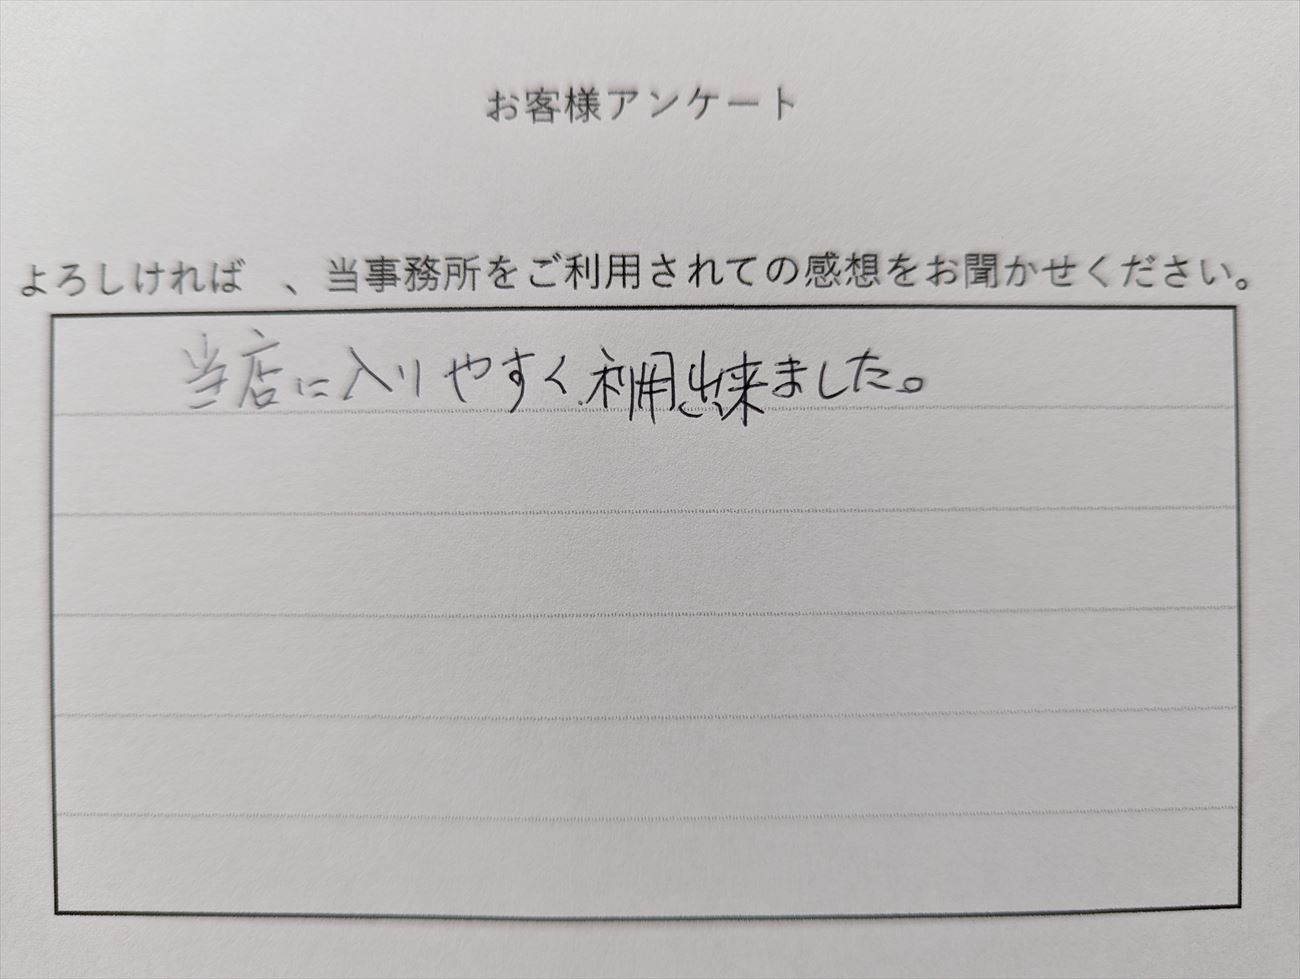 お客様アンケート
よろしければ 、当事務所をご利用されての感想をお聞かせください。
当店に入りやすく利用出来ました。